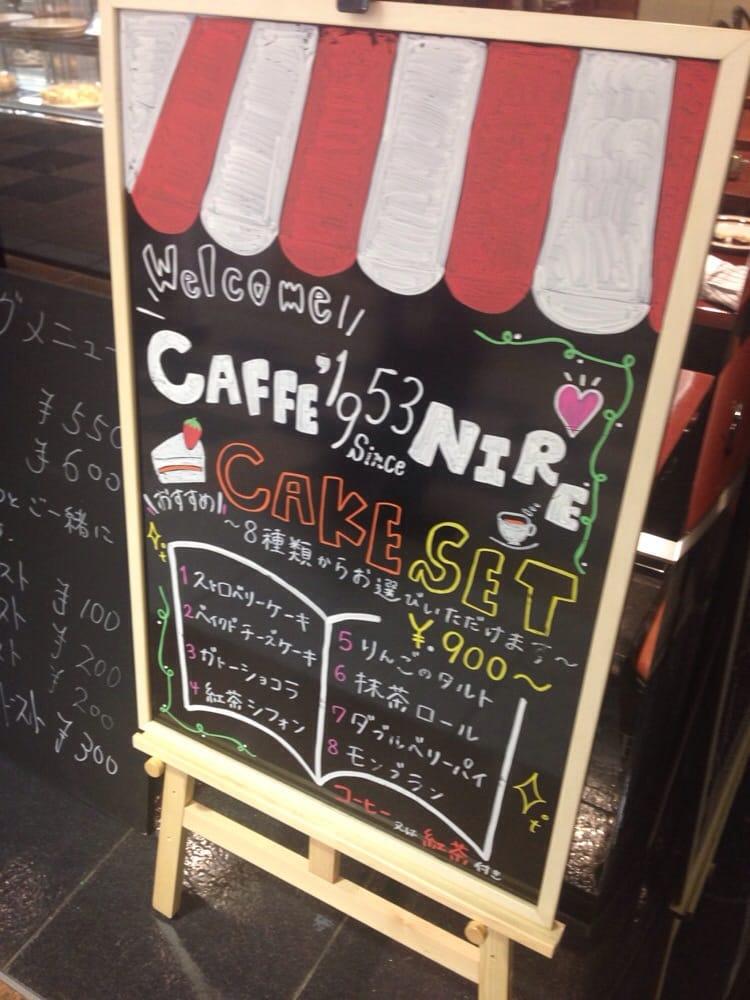 Welcome!!
CAFFE '1953 NIRE
Since
CAKE SET
おすすめ!
～8種類からお選びいただけます～
¥.900～
1 ストロベリーケーキ
2 ベイクドチーズケーキ
3 ガトーショコラ
4 紅茶シフォン
5 りんごのタルト
6 抹茶ロール
7 ダブルベリーパイ
8 モンブラン
コーヒー又は紅茶付き
グメニュー
¥550
¥600
とご一緒に
¥100
¥200
¥200
ースト ¥300